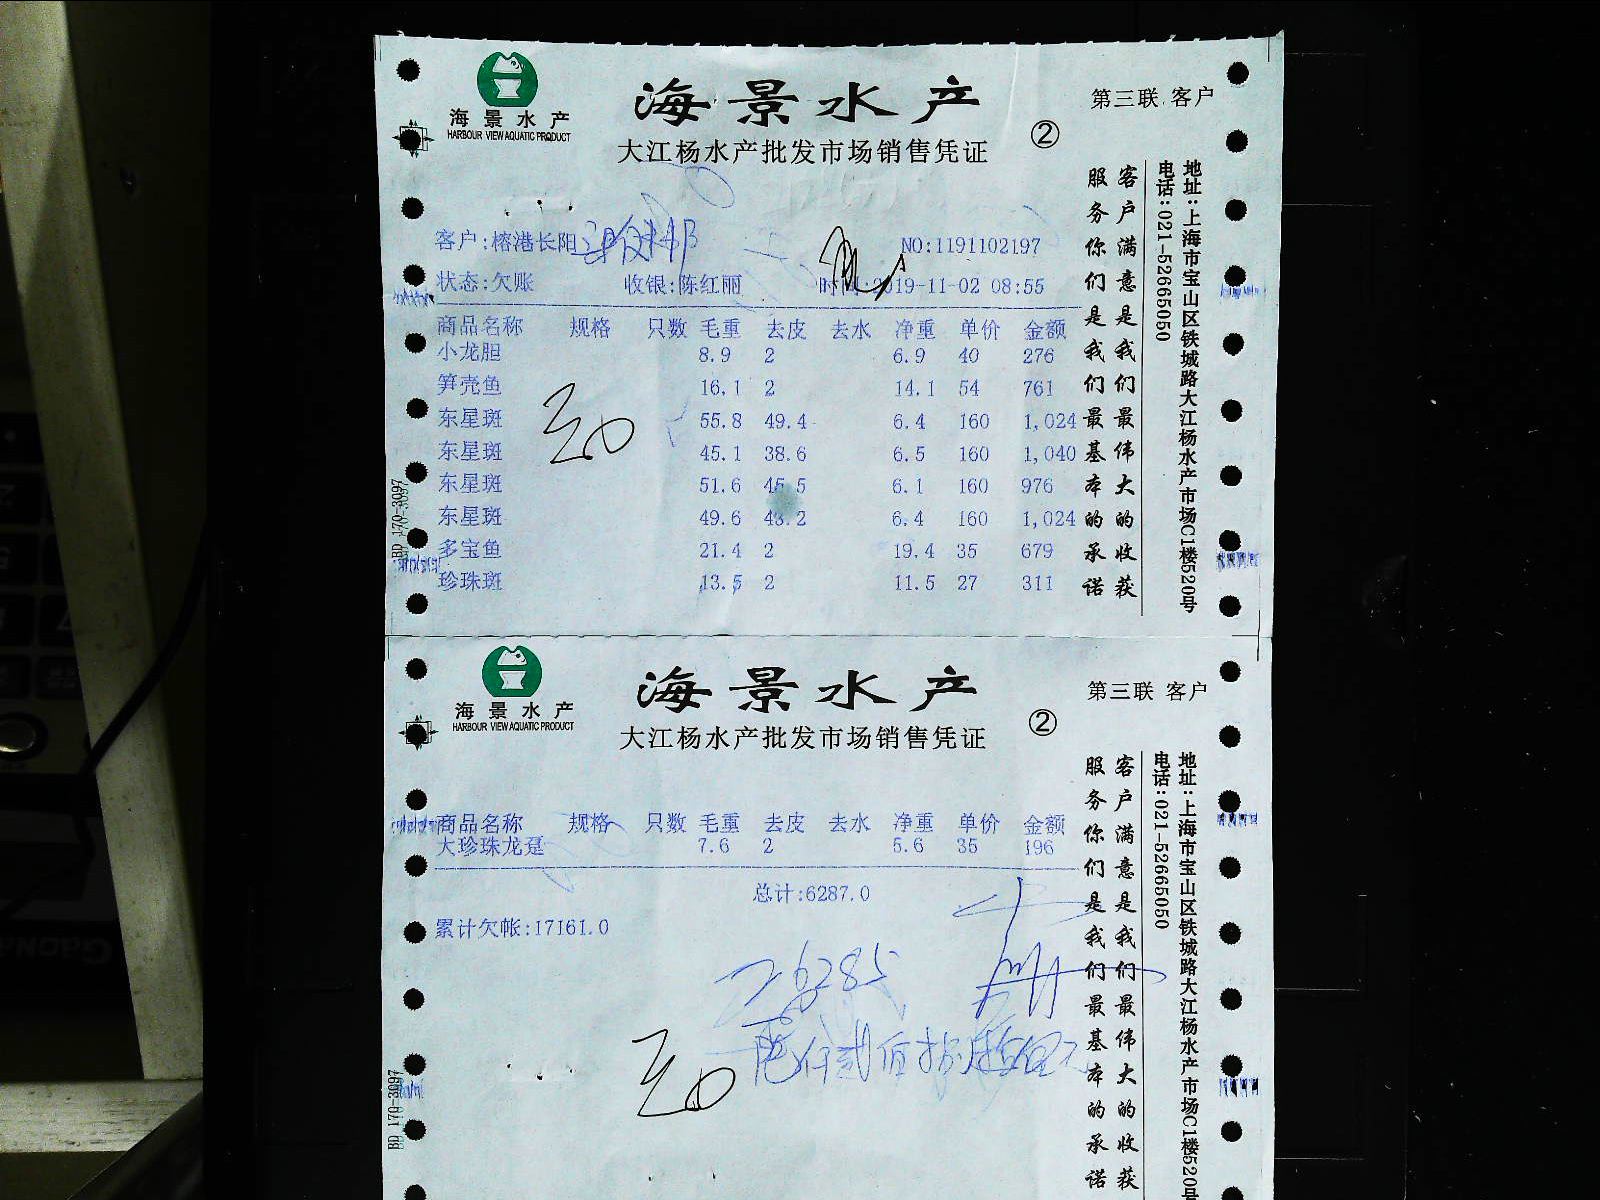 海景水产
HARBOUR VIEW AQUATIC PRODUCT
海景水产
大江杨水产批发市场销售凭证
②
第三联 客户
客户:榕港长阳
NO:1191102197
状态:欠账 收银:陈红丽 时间:2019-11-02 08:55
商品名称 规格 只数 毛重 去皮 去水 净重 单价 金额
小龙胆 8.9 2 6.9 40 276
笋壳鱼 16.1 2 14.1 54 761
东星斑 55.8 49.4 6.4 160 1,024
东星斑 45.1 38.6 6.5 160 1,040
东星斑 51.6 45.5 6.1 160 976
东星斑 49.6 43.2 6.4 160 1,024
多宝鱼 21.4 2 19.4 35 679
珍珠斑 13.5 2 11.5 27 311
客户满意是我们最伟大的收获
服务你们是我们最基本的承诺
地址:上海市宝山区铁城路大江杨水产市场C1楼520号
电话:021-52665050
BD 170-3097
海景水产
HARBOUR VIEW AQUATIC PRODUCT
海景水产
大江杨水产批发市场销售凭证
②
第三联 客户
商品名称 规格 只数 毛重 去皮 去水 净重 单价 金额
大珍珠龙趸 7.6 2 5.6 35 196
总计:6287.0
累计欠帐:17161.0
6285
客户满意是我们最伟大的收获
服务你们是我们最基本的承诺
地址:上海市宝山区铁城路大江杨水产市场C1楼520号
电话:021-52665050
BD 170-3097